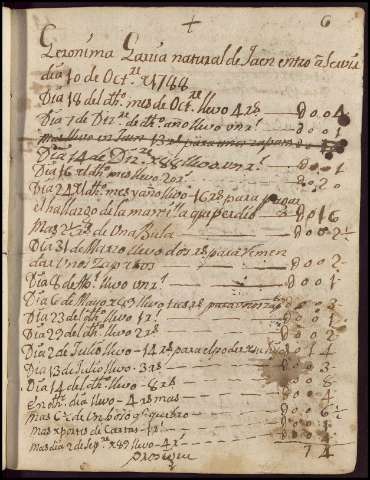 + 6
Geronima Garzia natural de Jaen entro a servir
dia 10 de Oct.re de 1788
Dia 18 del dho. mes de Oct.re llevo 4 rs — D004
Dia 7 de Dez.re de dicho año llevo vn rl — D001
mas llevo en Jaen 13 rs para unos zapatos
Dia 14 de Diz.re de 88 llevo vn rl — D001
Dia 16 del dho. mes llevo 2 rs — D002
Dia 24 del dho. mes y año llevo 16 rs para pagar
el hallazgo de la mantilla que perdio — D016
Mas de una Bula — D002½
Dia 31 de Marzo llevo dos rs para remen
dar unos Zapatos — D002
Dia 8 de llevo vn rl — D001
Dia 6 de Mayo de 89 llevo tres rs para — 3
Dia 23 del dho. llevo 1 rl — D001
Dia 29 del dho. llevo 2 rs — D002
Dia 2 de Julio llevo 14 rs para el — 14
Dia 13 de Julio llevo 3 rs — 3
Dia 14 del dho. llevo 8 rs — D008
En dho. dia llevo 4 rs mas — D004
Mas de un que quebro — D0 ½
Mas portes de Cartas 1 rl — 1
Mas dia 2 de Sep.re de 89 llevo 4 rs
74
prosigue